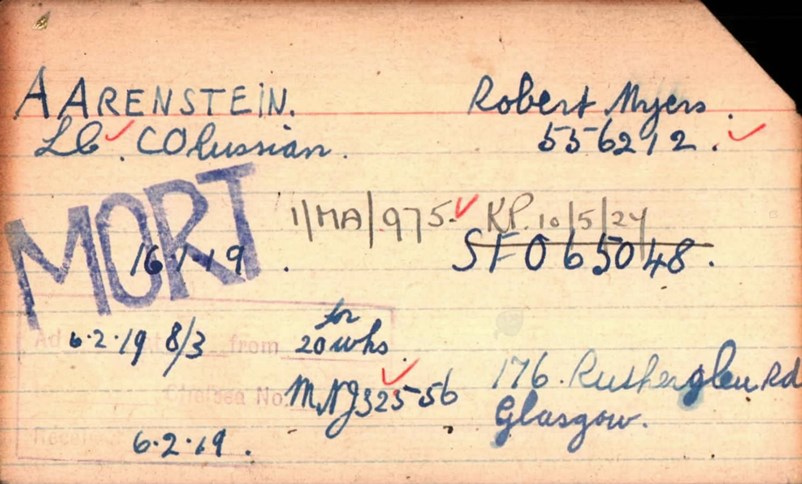 AARENSTEIN. Robert Myers.
LC. CORussian. 556212.
MORT
1/MA/975. KP. 10/5/24
16.1.19. SF065048.
for
Ad 6.2.19 8/3 from 20 wks.
176. Rutherglen Rd
Chelsea No. MNJ325556
Glasgow.
6.2.19.